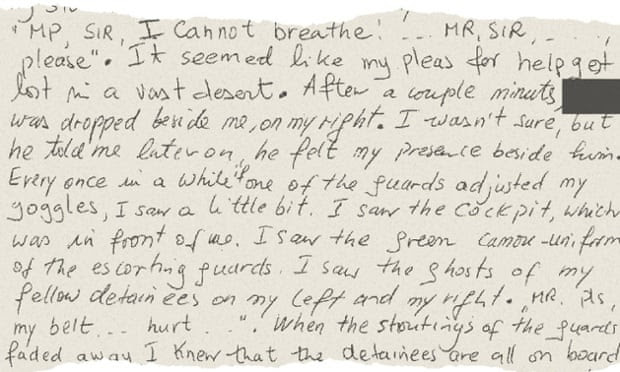 "MP, SIR, I Cannot breathe! ... MR, SIR, ...,
please". It seemed like my pleas for help get
lost in a vast desert. After a couple minuts,
was dropped beside me, on my right. I wasn't sure, but
he told me later on, he felt my presence beside him.
Every once in a while if one of the guards adjusted my
goggles, I saw a little bit. I saw the cockpit, which
was in front of me. I saw the green camou-uniform
of the escorting guards. I saw the ghosts of my
fellow detainees on my left and my right. "MR. pls,
my belt... hurt...". When the shoutings of the guards
faded away I knew that the detainees are all on board